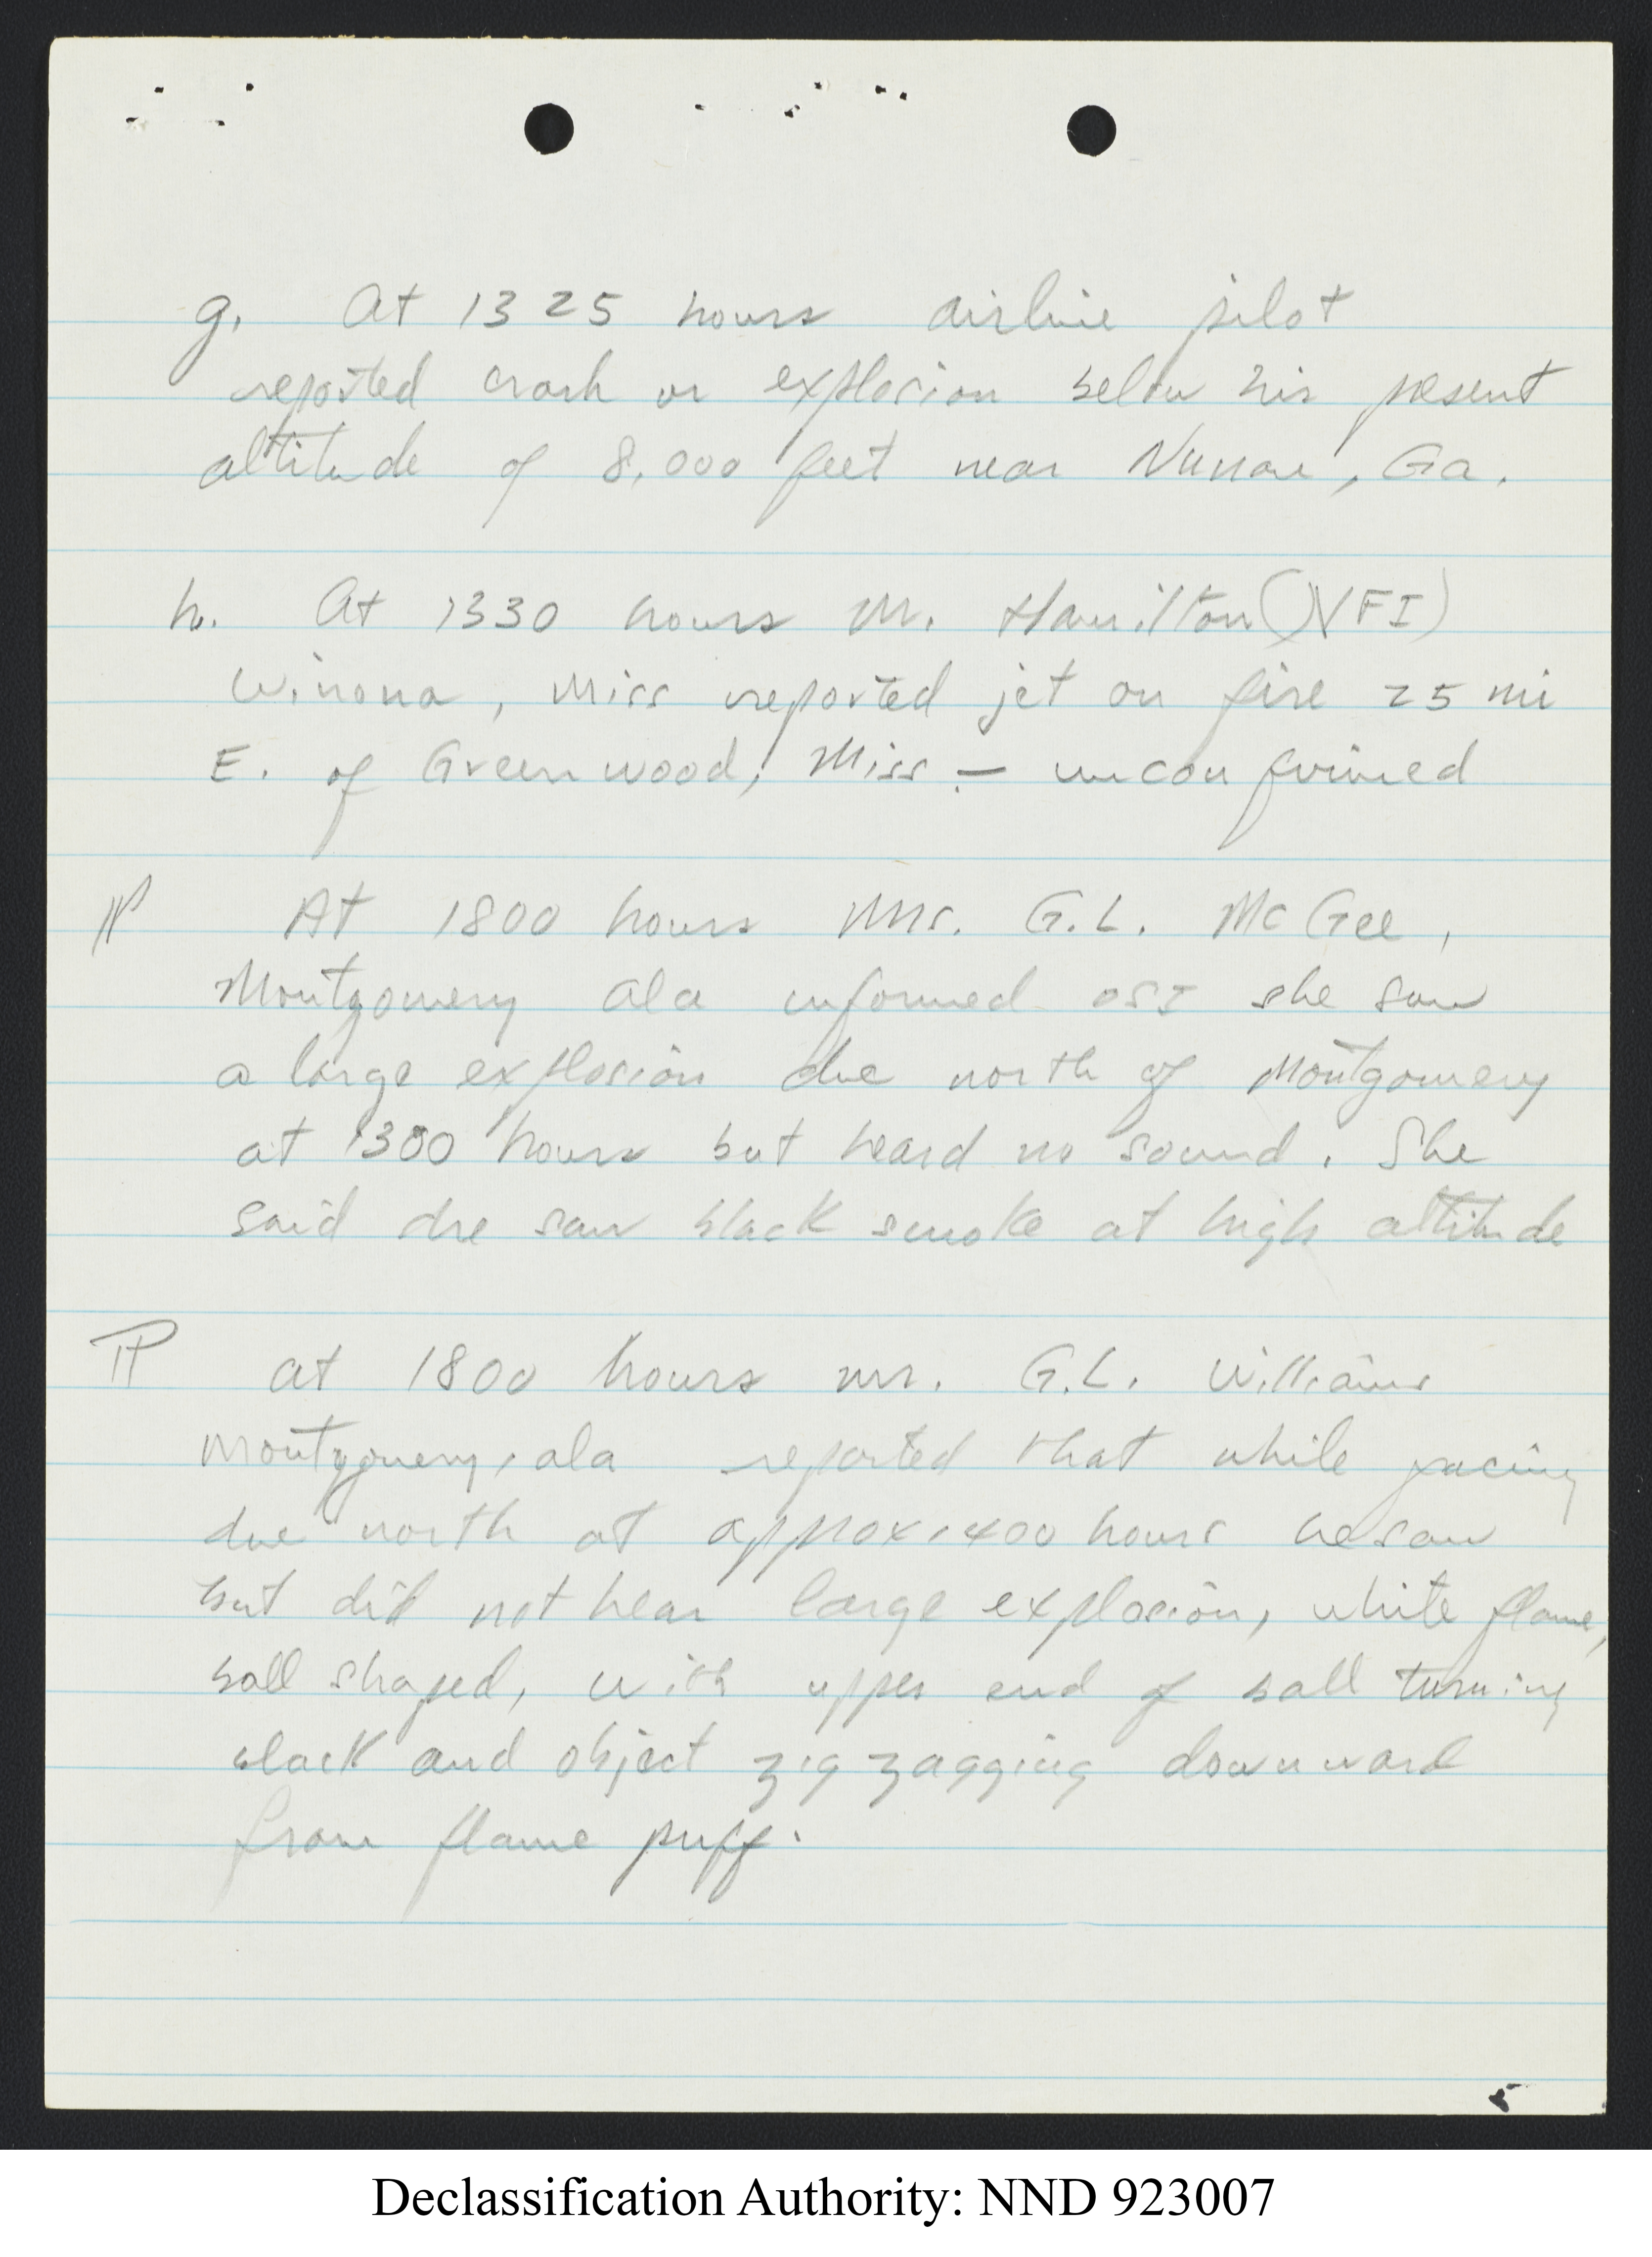 g. At 1325 hours airline pilot
reported crash or explosion below his present
altitude of 8,000 feet near Nunan, Ga.
h. At 1330 hours Mr. Hamilton (NFI)
Winona, Miss reported jet on fire 25 mi
E. of Greenwood, Miss. — unconfirmed
¶ At 1800 hours Mrs. G.L. McGee,
Montgomery Ala informed OSI she saw
a large explosion due north of Montgomery
at 1300 hours but heard no sound. She
said she saw black smoke at high altitude
¶ at 1800 hours mr. G.L. Williams
Montgomery, ala reported that while facing
due north at approx 1400 hours he saw
but did not hear large explosion, white flame,
ball shaped, with upper end of ball turning
black and object zig zagging downward
from flame puff.
5
Declassification Authority: NND 923007